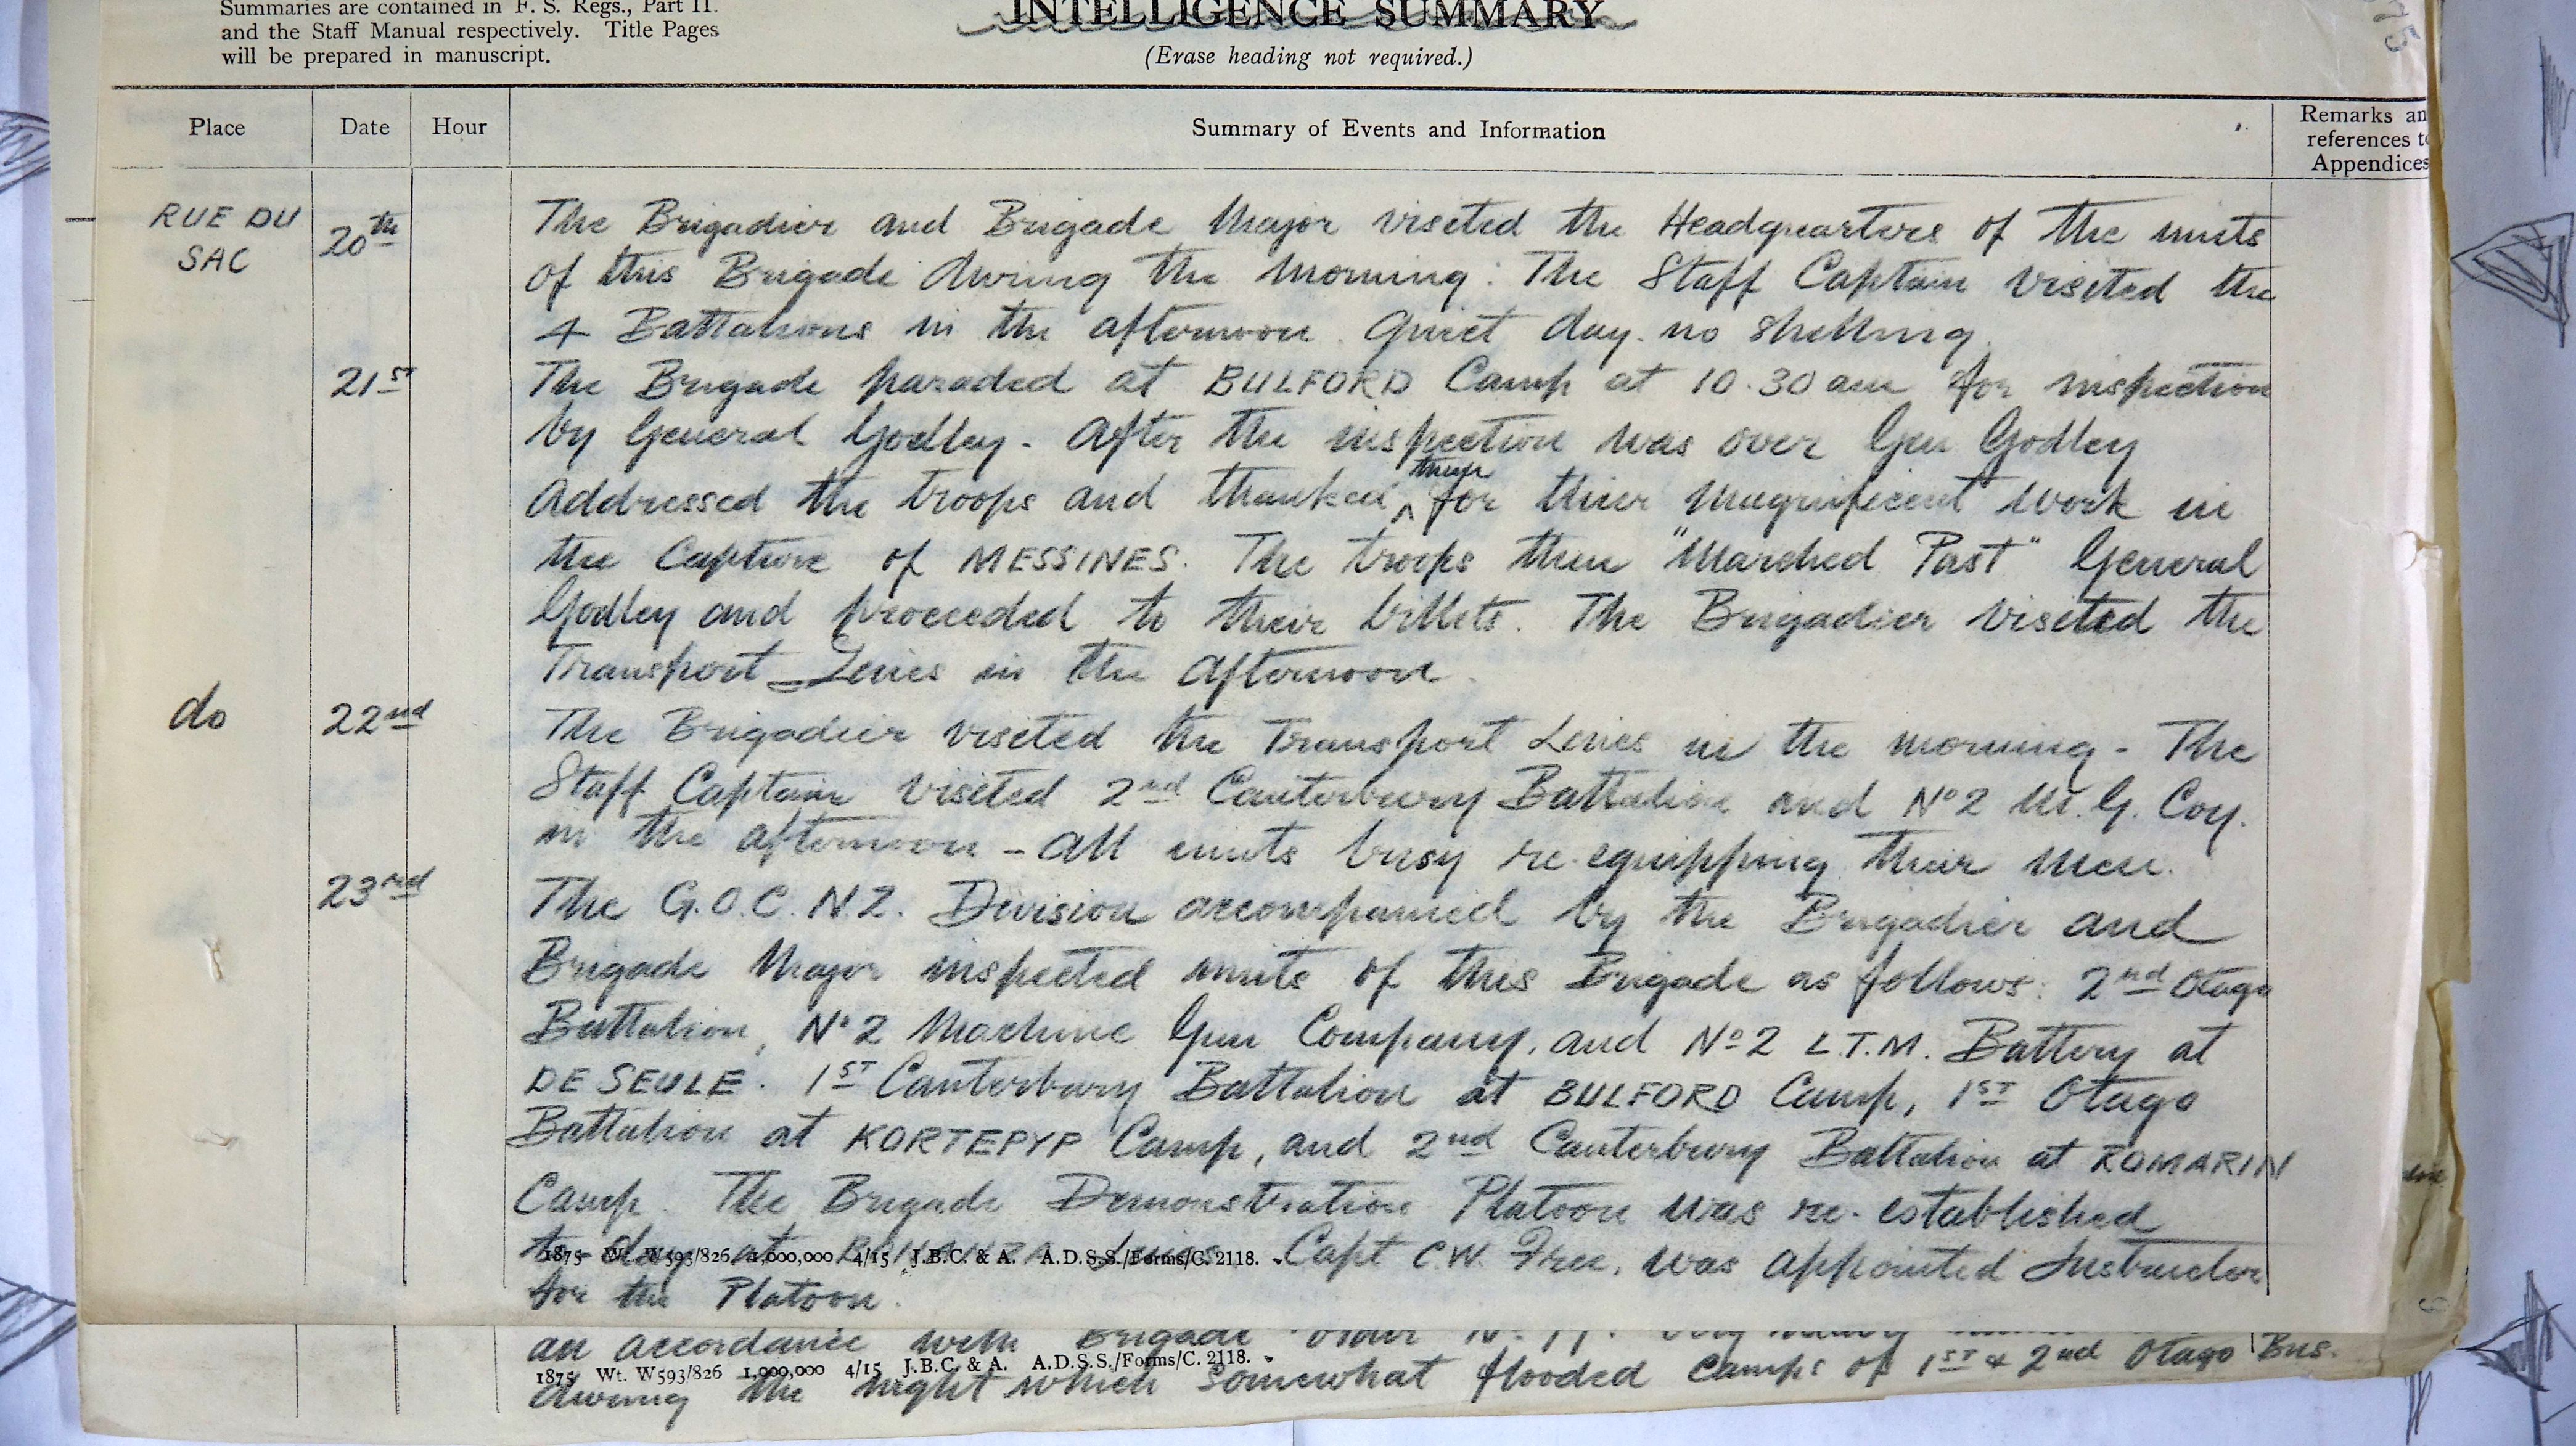 Summaries are contained in F. S. Regs., Part II.
and the Staff Manual respectively. Title Pages
will be prepared in manuscript.
INTELLIGENCE SUMMARY
(Erase heading not required.)
Place
Date
Hour
Summary of Events and Information
Remarks an
references t
Appendices
RUE DU
SAC
20th
The Brigadier and Brigade Major visited the Headquarters of the units
of this Brigade during the morning. The Staff Captain visited the
4 Battalions in the afternoon. Quiet day. no shelling.
21st
The Brigade paraded at BULFORD Camp at 10.30 am for inspection
by General Godley - After the inspection was over Gen Godley
addressed the troops and thanked ^ them for their magnificent work in
the Capture of MESSINES. The troops then "Marched Past" General
Godley and proceeded to their billets. The Brigadier visited the
Transport Lines in the afternoon.
do
22nd
The Brigadier visited the Transport Lines in the morning - The
Staff Captain visited 2nd Canterbury Battalion and No 2 M.G. Coy.
in the afternoon - All units busy re-equipping their men.
23rd
The G.O.C. N.Z. Division accompanied by the Brigadier and
Brigade Major inspected units of this Brigade as follows: 2nd Otago
Battalion, No 2 Machine Gun Company, and No 2 L.T.M. Battery at
DE SEULE. 1st Canterbury Battalion at BULFORD Camp, 1st Otago
Battalion at KORTEPYP Camp, and 2nd Canterbury Battalion at ROMARIN
Camp. The Brigade Demonstration Platoon was re-established
to-day at Lines. Capt C.W. Free, was appointed Instructor
1875 Wt. W593/826 1,000,000 4/15 J.B.C. & A. A.D.S.S./Forms/C. 2118.
for the Platoon.
an accordance with Brigade Order No.
1875 Wt. W593/826 1,000,000 4/15 J.B.C. & A. A.D.S.S./Forms/C. 2118.
during the night which somewhat flooded camps of 1st & 2nd Otago Bns.